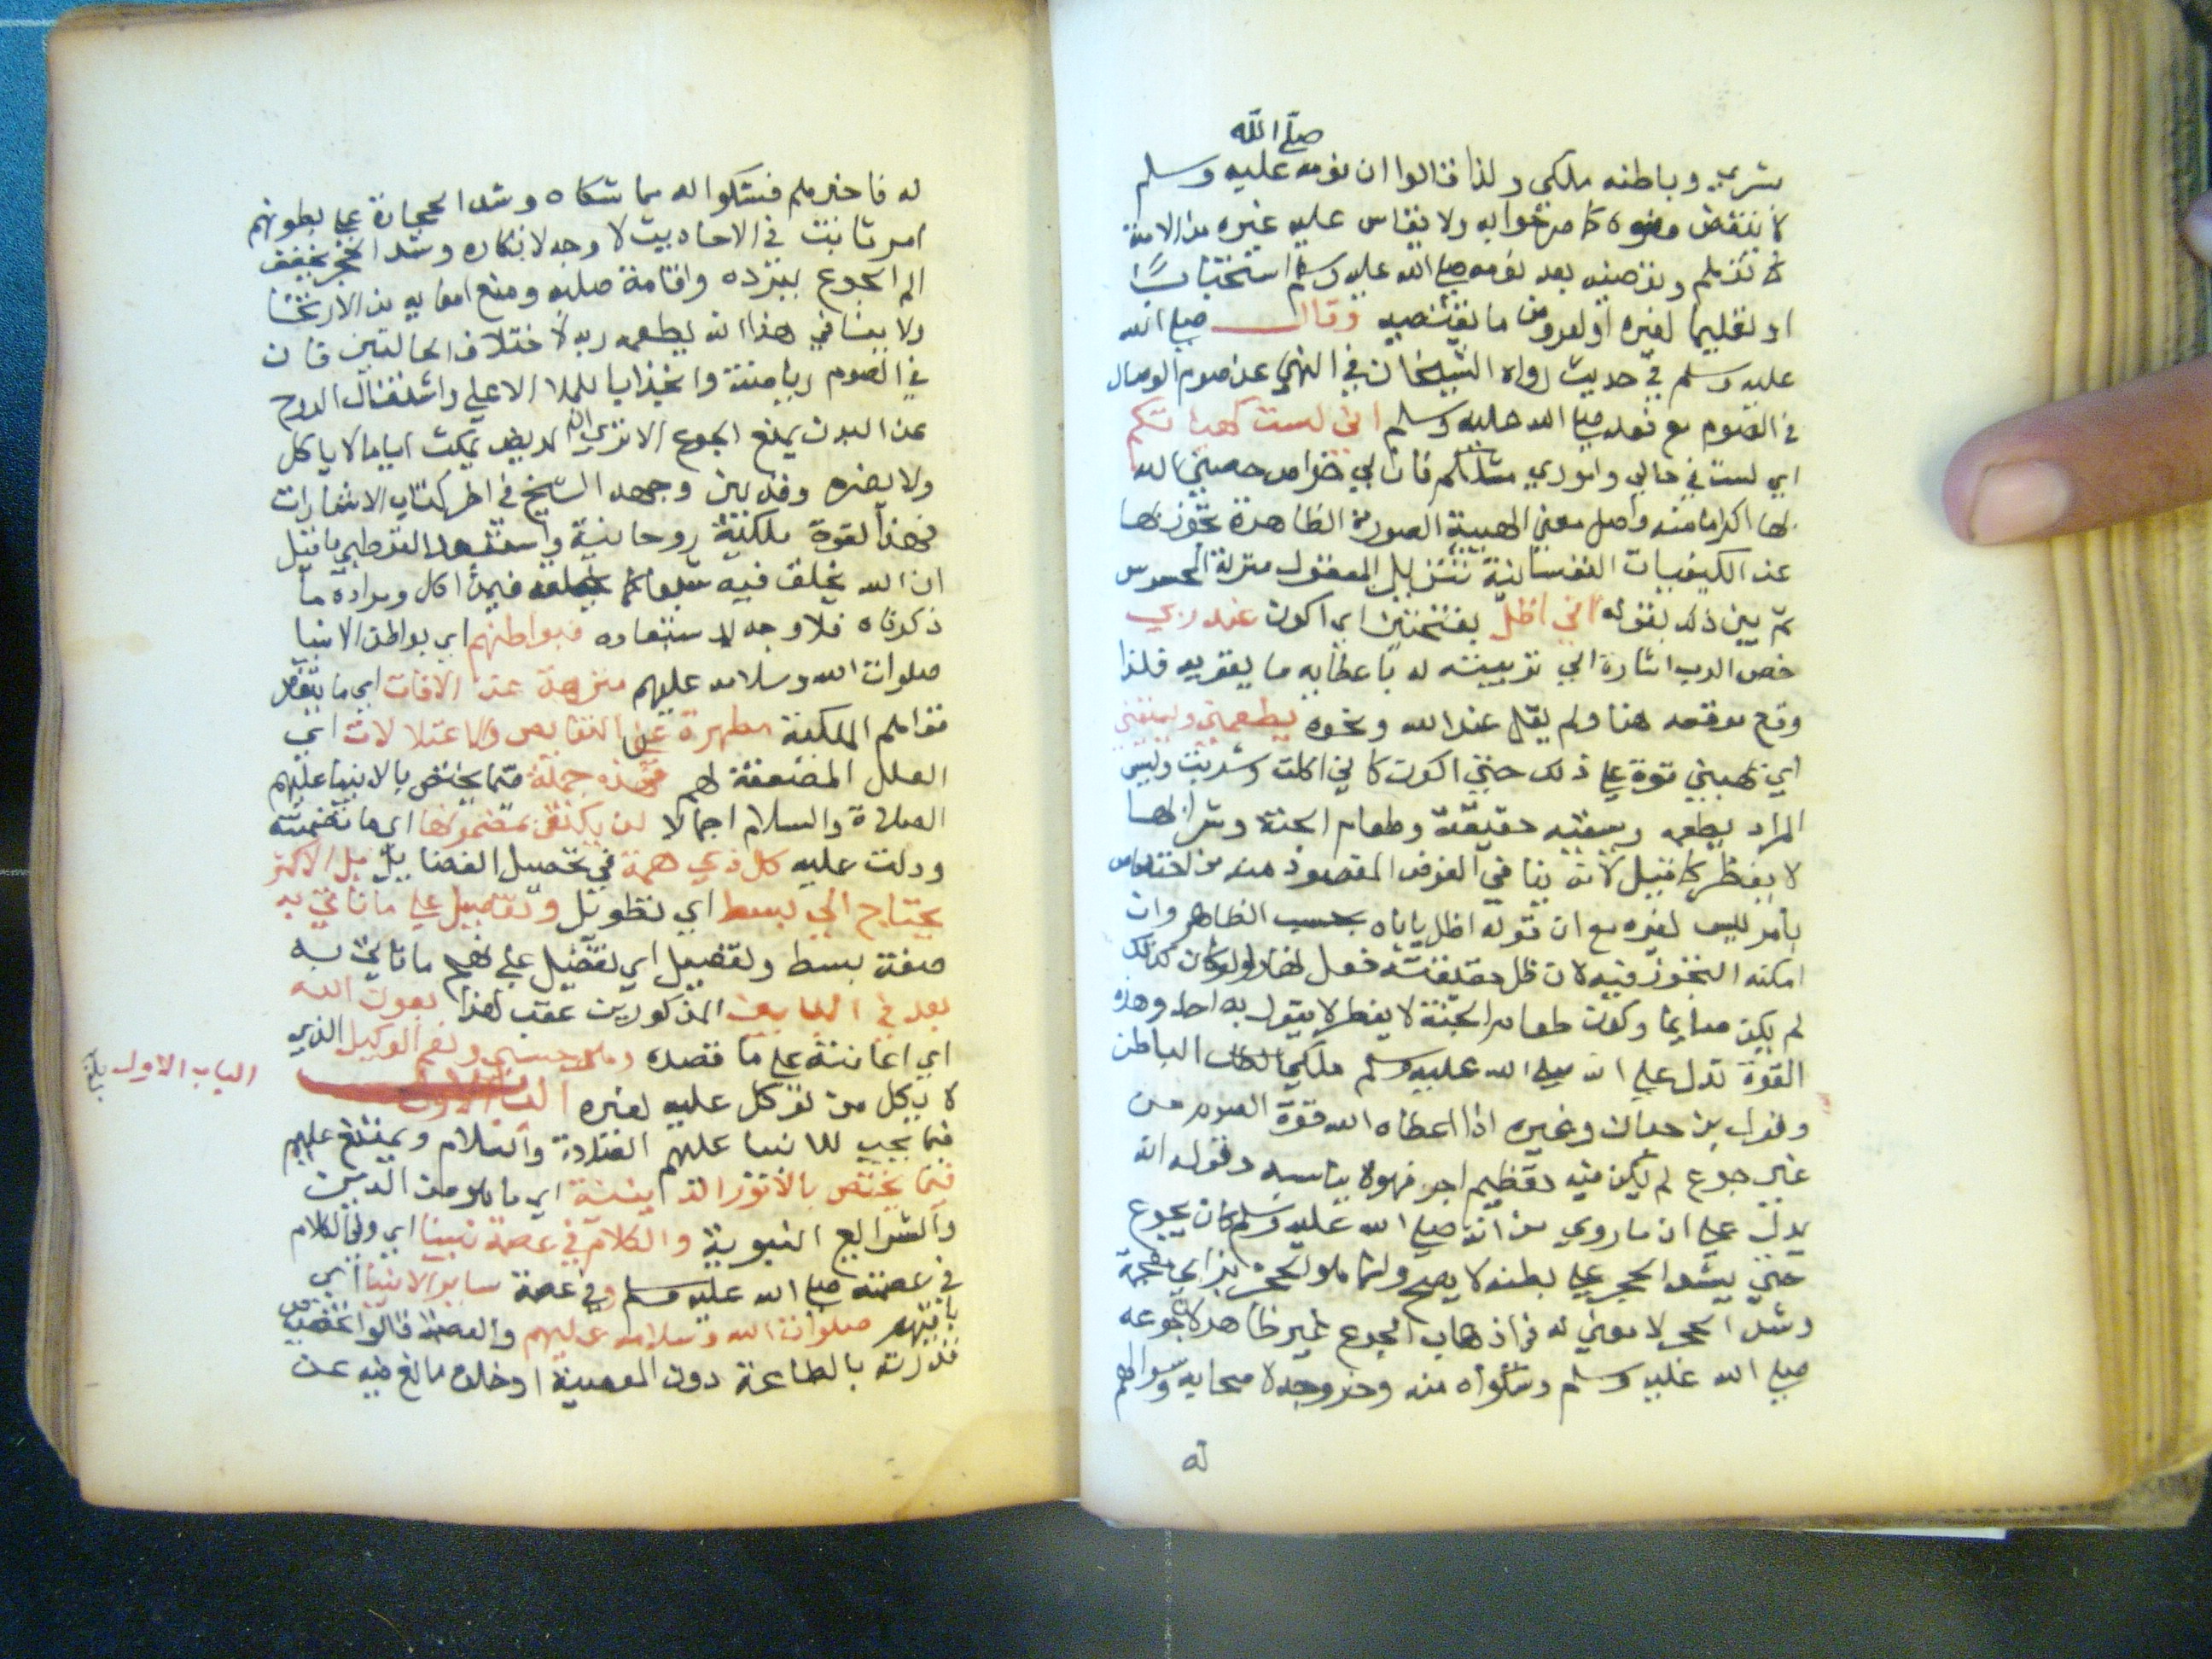 صلى الله
بشري وباطنه ملكي ولذا قالوا ان نومه عليه وسلم
لا ينقض وضوءه كما صرحوا به ولا يقاس عليه غيره من الامة
او تعليما لغيره او لعروض ما يقتضيه وقال صلى الله
عليه وسلم في حديث رواه الشيخان في النهي عن صوم الوصال
في الصوم مع فعله صلى الله عليه وسلم اني لست كهيئاتكم
اي لست في حالي واموري مثلكم فان لي خواص خصني الله
بها اكراما منه واصل معنى الهيئة الصورة الظاهرة تجوز بها
عن الكيفيات النفسانية تنزيل المعقول منزلة المحسوس
ثم بين ذلك بقوله اني اظل بفتحتين اي اكون عند ربي
خص الرب اشارة الى تربيته له باعطائه ما يقويه فلذا
وقع موقعه هنا ولم يقل عند الله ونحوه يطعمني ويسقيني
اي يهبني قوة على ذلك حتى اكون كاني اكلت وشربت وليس
المراد يطعمه ويسقيه حقيقة وطعام الجنة وشرابها
لا يفطر كما قيل لانه ينافي الغرض المقصود منه من اختصاص
بامر ليس لغيره مع ان قوله اظل ياباه بحسب الظاهر وان
امكنه التجوز فيه لان ظل حقيقته فعل نهارا ولو كان كذلك
لم يكن صايما وكون طعام الجنة لا يفطر لا يقول به احد وهذه
القوة تدل على انه صلى الله عليه وسلم ملكي الباطن
وقول بن حبان وغيره اذا اعطاه الله قوة الصوم من
غير جوع لم يكن فيه تعظيم اجر فهولا يناسبه وقوله انه
يدل على ان ما روي من انه صلى الله عليه وسلم كان يجوع
حتى يشد الحجر على بطنه لا يصح وانما هو الحجز بزاي معجمة
وشد الحجر لا معنى له في اذهاب الجوع غير ظاهر لان جوعه
صلى الله عليه وسلم وشكواه منه وخروجه لاصحابه وسوالهم
له
له فاخبرهم فشكوا له مما شكاه وشد الحجارة على بطونهم
امر ثابت في الاحاديث لا وجه لانكاره وشد الحجر يخفف
الم الجوع ببرده واقامة صلبه ومنع امعايه من الارتخا
ولا ينافي هذا انه يطعمه ربه لاختلاف الحالتين فان
في الصوم رياضة وانجذابا للملا الاعلى واشتغال الروح
عن البدن يمنع الجوع الا ترى ان المريض يمكث اياما لا ياكل
ولا يضره وقد بين وجهه الشيخ في اخر كتاب الاشارات
فهذه القوة ملكية روحانية واستبعد القرطبي ما قيل
ان الله يخلق فيه شبعا كما يخلقه فيمن اكل ومراده ما
ذكرناه فلا وجه لاستبعاده فبواطنهم اي بواطن الانبيا
صلوات الله وسلامه عليهم منزهة عن الافات اي ما ينقص
قواهم الملكية مطهرة عن النقايص والاعتلالات اي
العلل المضعفة لهم فهذه جملة مما يختص بالانبيا عليهم
الصلاة والسلام اجمالا لن يكتفي بمضمونها اي ما تضمنته
ودلت عليه كل ذي همة في تحصيل الفضايل بل الاكثر
يحتاج الى بسط اي تطويل وتفصيل على ما ناتي به
صفة بسط وتفصيل اي تفصيل على نهج ما ناتي به
بعد في البابين المذكورين عقب هذا بعون الله
اي اعانته على ما قصده وهو حسبي ونعم الوكيل الذي
لا يكل من توكل عليه لغيره الباب الاول
فيما يجب للانبيا عليهم الصلاة والسلام ويمتنع عليهم
فيما يختص بالامور الدينية اي ما هو من الدين
والشرايع النبوية والكلام في عصمة نبينا اي وفي الكلام
في عصمته صلى الله عليه وسلم وفي عصمة ساير الانبيا اي
باقيهم صلوات الله وسلامه عليهم والعصمة قالوا تخصيص
قدرته بالطاعة دون المعصية او خلق مانع فيه عن
الباب الاول